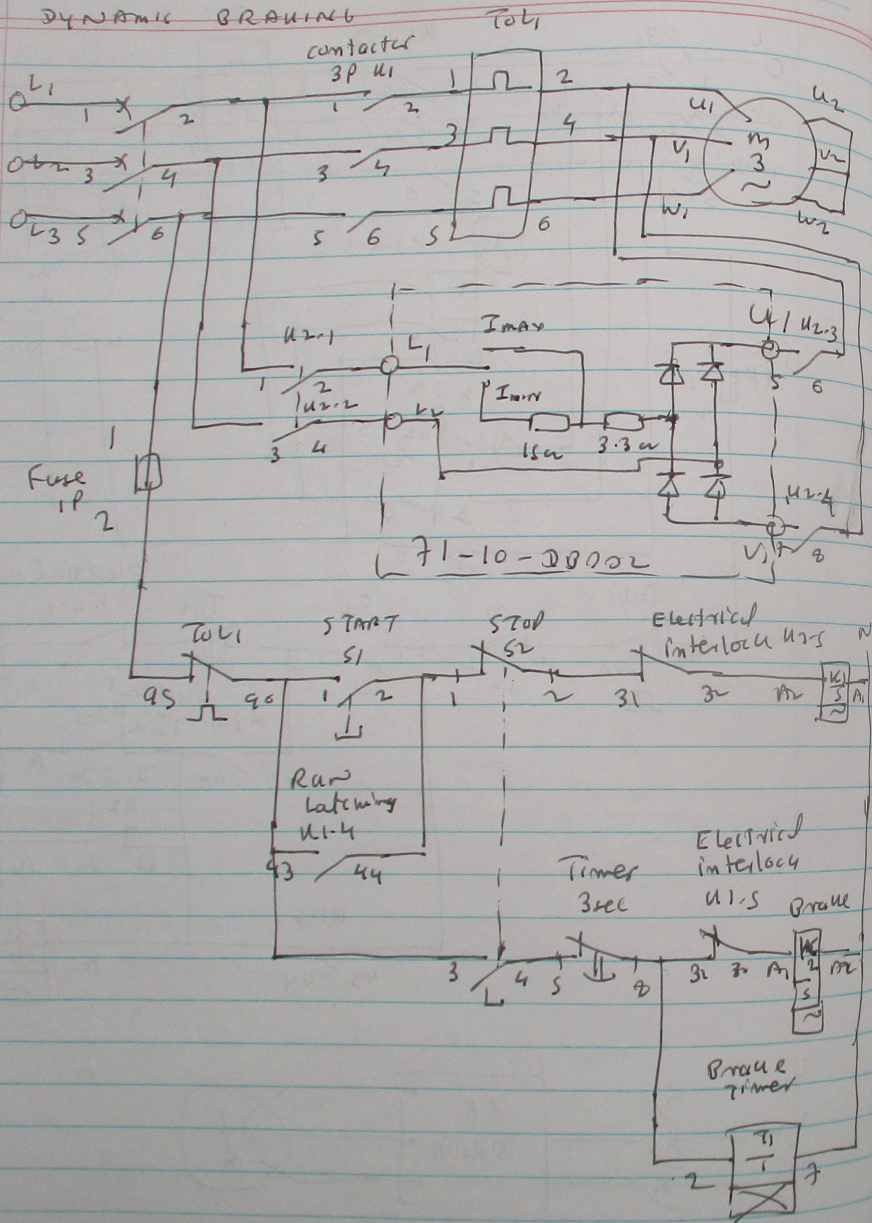 DYNAMIC BRAKING
TOL1
contactor
3P K1
L1
1
2
1
2
1
2
U1
U2
L2
3
4
3
4
3
4
V1
M
3
~
V2
L3
5
6
5
6
5
6
W1
W2
K2-1
L1
Imax
U1
K2-3
1
2
5
6
K2-2
L2
Imin
3
4
15Ω
3.3Ω
1
Fuse
1P
2
K2-4
V1
7
8
71-10-DB002
TOL1
START
S1
STOP
S2
Electrical
interlock K2-5
N
95
96
1
2
1
2
31
32
A2
K1
A1
5
~
Run
Latching
K1-4
43
44
Timer
3sec
Electrical
interlock
K1-5
Brake
3
4
5
8
A1
K
2
A2
5
~
Brake
Timer
T1
2
7